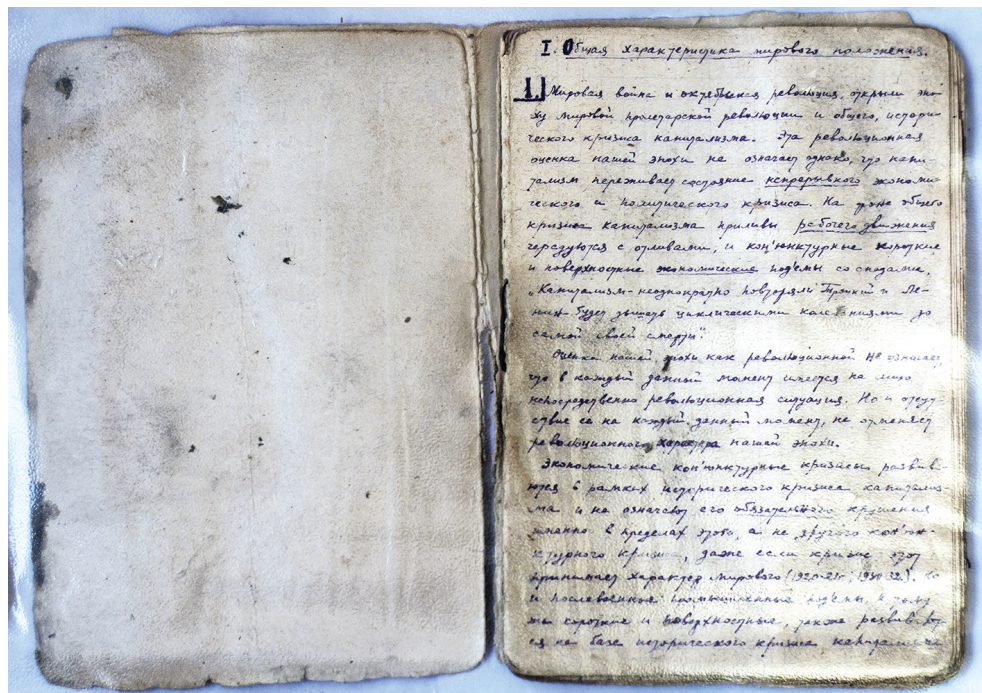 I. Общая характеристика мирового положения.
1. Мировая война и октябрьская революция, открыли эпо-
ху мировой пролетарской революции и общего, истори-
ческого кризиса капитализма. Эта революционная
оценка нашей эпохи не означает однако, что капи-
тализм переживает состояние непрерывного экономи-
ческого и политического кризиса. На фоне общего
кризиса капитализма приливы рабочего движения
чередуются с отливами, и кон'юнктурные короткие
и поверхностные экономические под'емы со спадами.
„Капитализм - неоднократно повторяли Троцкий и Ле-
нин - будет дышать циклическими колебаниями до
самой своей смерти".
Оценка нашей эпохи как революционной не означает,
что в каждый данный момент имеется на лицо
непосредственно революционная ситуация. Но и отсут-
ствие ее на каждый данный момент, не отменяет
революционного характера нашей эпохи.
Экономические кон'юнктурные кризисы развива-
ются в рамках исторического кризиса капитализ-
ма и не означают его обязательного крушения
именно в пределах этого, а не другого кон'юн-
ктурного кризиса, даже если кризис этот
принимает характер мирового (1920-21г.; 1930-32.). Но
и послевоенные промышленные под'емы, к тому
же короткие и поверхностные, также развивают-
ся на базе исторического кризиса капитализма